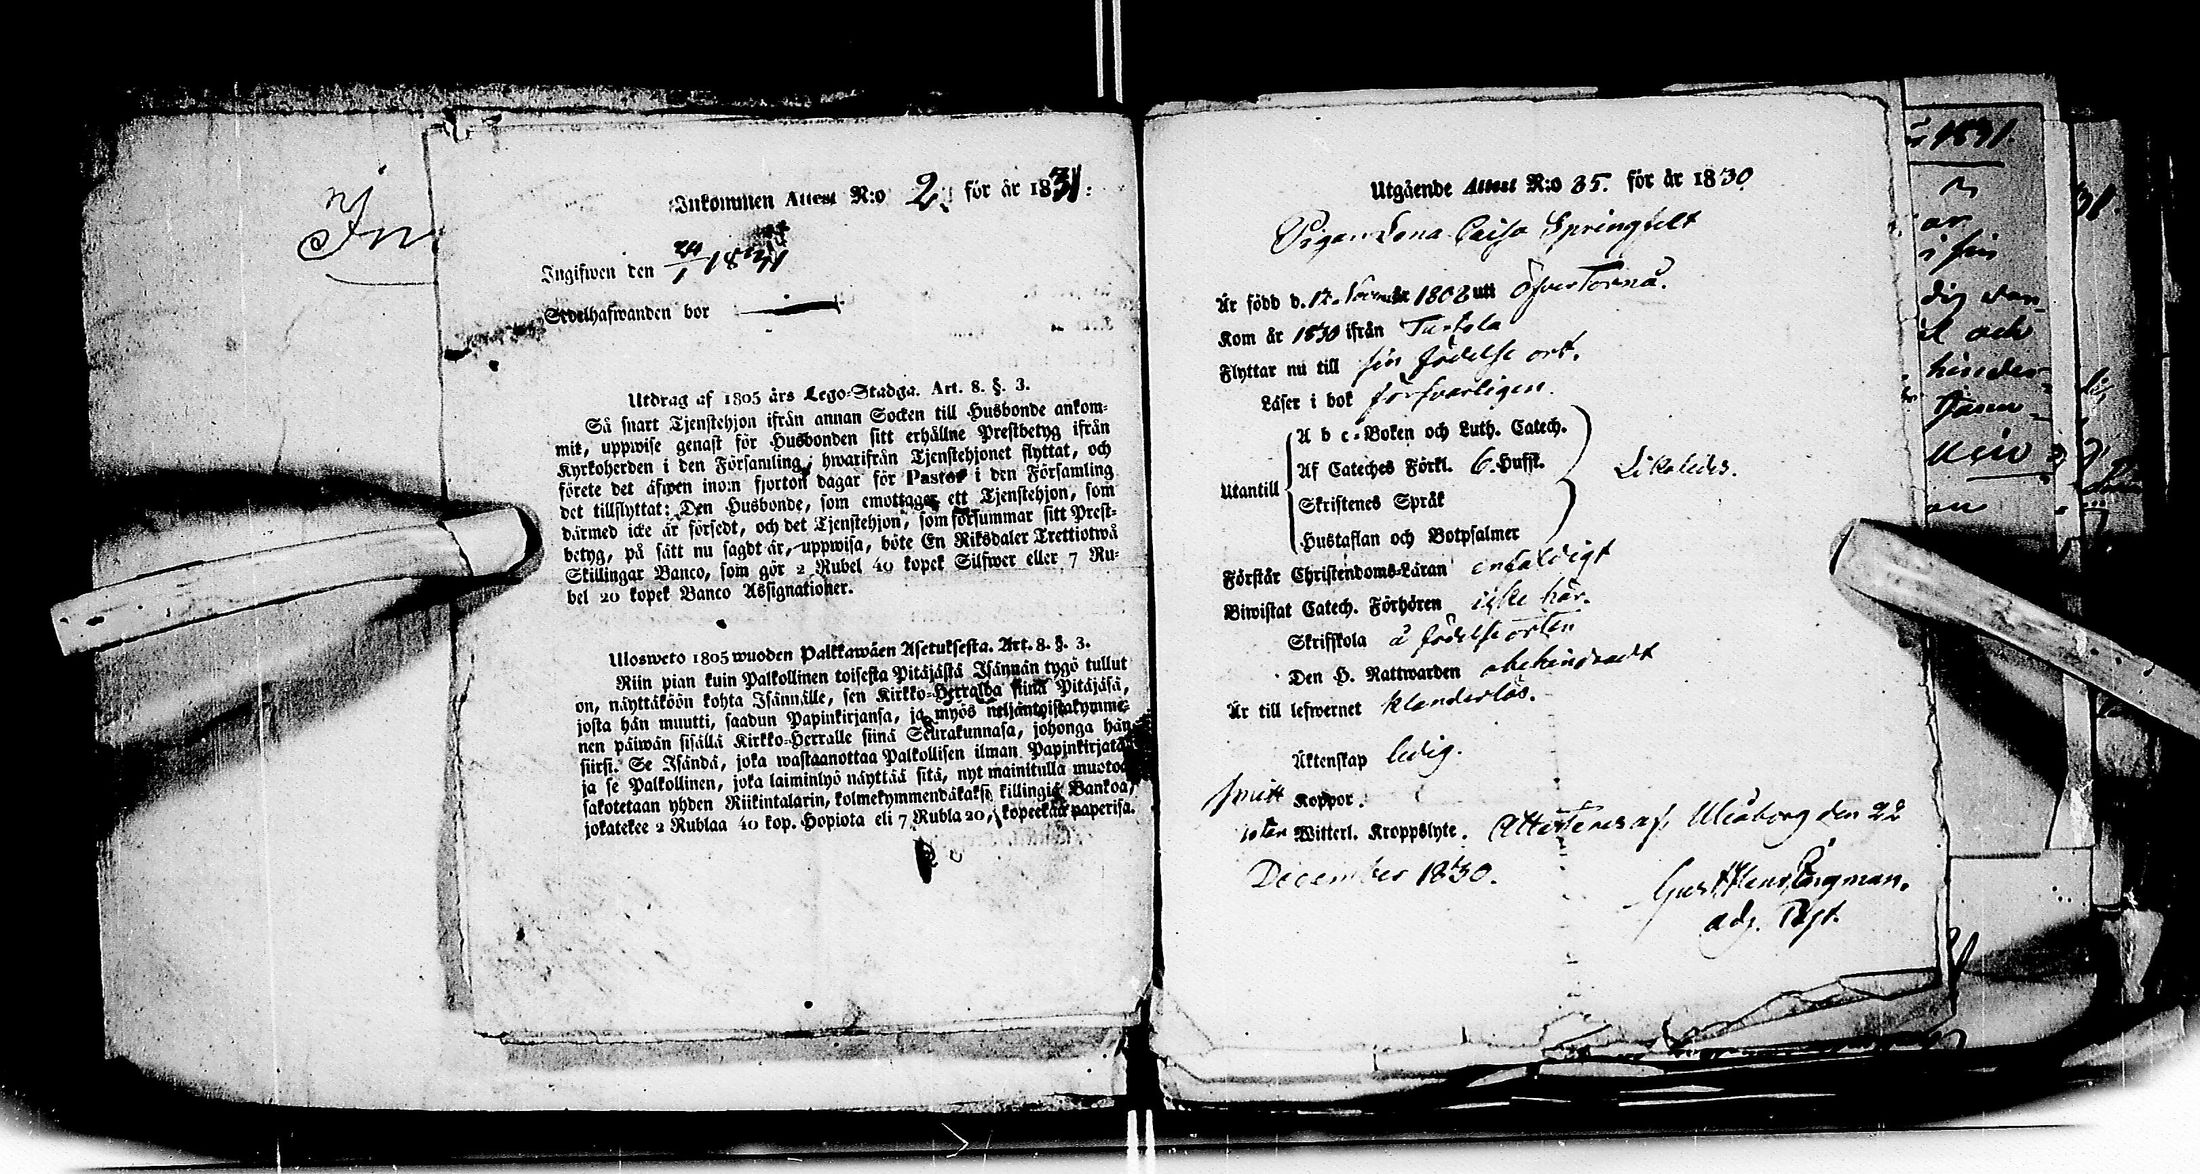 Inkommen Attest N:o 2 för år 1831.
Ingifwen den 24/1 1831
Sedelhafwanden bor
Utdrag af 1805 års Lego-Stadga. Art. 8. §. 3.
Så snart Tjenstehjon ifrån annan Socken till Husbonde ankom-
mit, uppwise genast för Husbonden sitt erhållne Prestbetyg ifrån
Kyrkoherden i den Församling, hwarifrån Tjenstehjonet flyttat, och
förete det äfwen inom fjorton dagar för Pastor i den Församling
det tillflyttat: Den Husbonde, som emottager ett Tjenstehjon, som
därmed icke är försedt, och det Tjenstehjon, som försummar sitt Prest-
betyg, på sätt nu sagdt är, uppwisa, böte En Riksdaler Trettiotwå
Skillingar Banco, som gör 2 Rubel 40 kopek Silfwer eller 7 Ru-
bel 20 kopek Banco Assignationer.
Ulosweto 1805 wuoden Palkkawäen Asetuksesta. Art. 8. §. 3.
Niin pian kuin Palkollinen toisesta Pitäjästä Isännän tygö tullut
on, näyttäköön kohta Isännälle, sen Kirkko-Herralda siinä Pitäjäsä,
josta hän muutti, saadun Papinkirjansa, ja myös neljäntoistakymme-
nen päiwän sisällä Kirkko-Herralle siinä Seurakunnasa, johonga hän
siirsi. Se Isändä, joka wastaanottaa Palkollisen ilman Papinkirjata
ja se Palkollinen, joka laiminlyö näyttää sitä, nyt mainitulla muotoa
sakotetaan yhden Riikintalarin, kolmekymmendäkaksi killingiä Bankoa,
jokatekee 2 Rublaa 40 kop. Hopiota eli 7 Rubla 20, kopeekaa paperisa.
Utgående Attest N:o 35. för år 1830
Pigan Lena Caisa Springfelt
Är född d. 12. Novemb. år 1808 uti Öfver Torneå.
Kom år 1830 ifrån Turtola
Flyttar nu till sin födelse ort.
Läser i bok försvarligen.
Utantill
A b c-Boken och Luth. Catech.
Af Cateches Förkl. 6. Hufst.
Skriftenes Språk
Hustaflan och Botpsalmer
Likaledes.
Förstår Christendoms-Läran enfaldigt
Biwistat Catech. Förhören icke här.
Skriftskola å födelse orten
Den H. Nattwarden obehindradt
Är till lefwernet klanderlös.
Äktenskap ledig.
Koppor.
utan Witterl. Kroppslyte. Attesteras af. Uleåborg den 22
December 1830.
Gust. Henr. Bergman.
adj. Past.
1831.